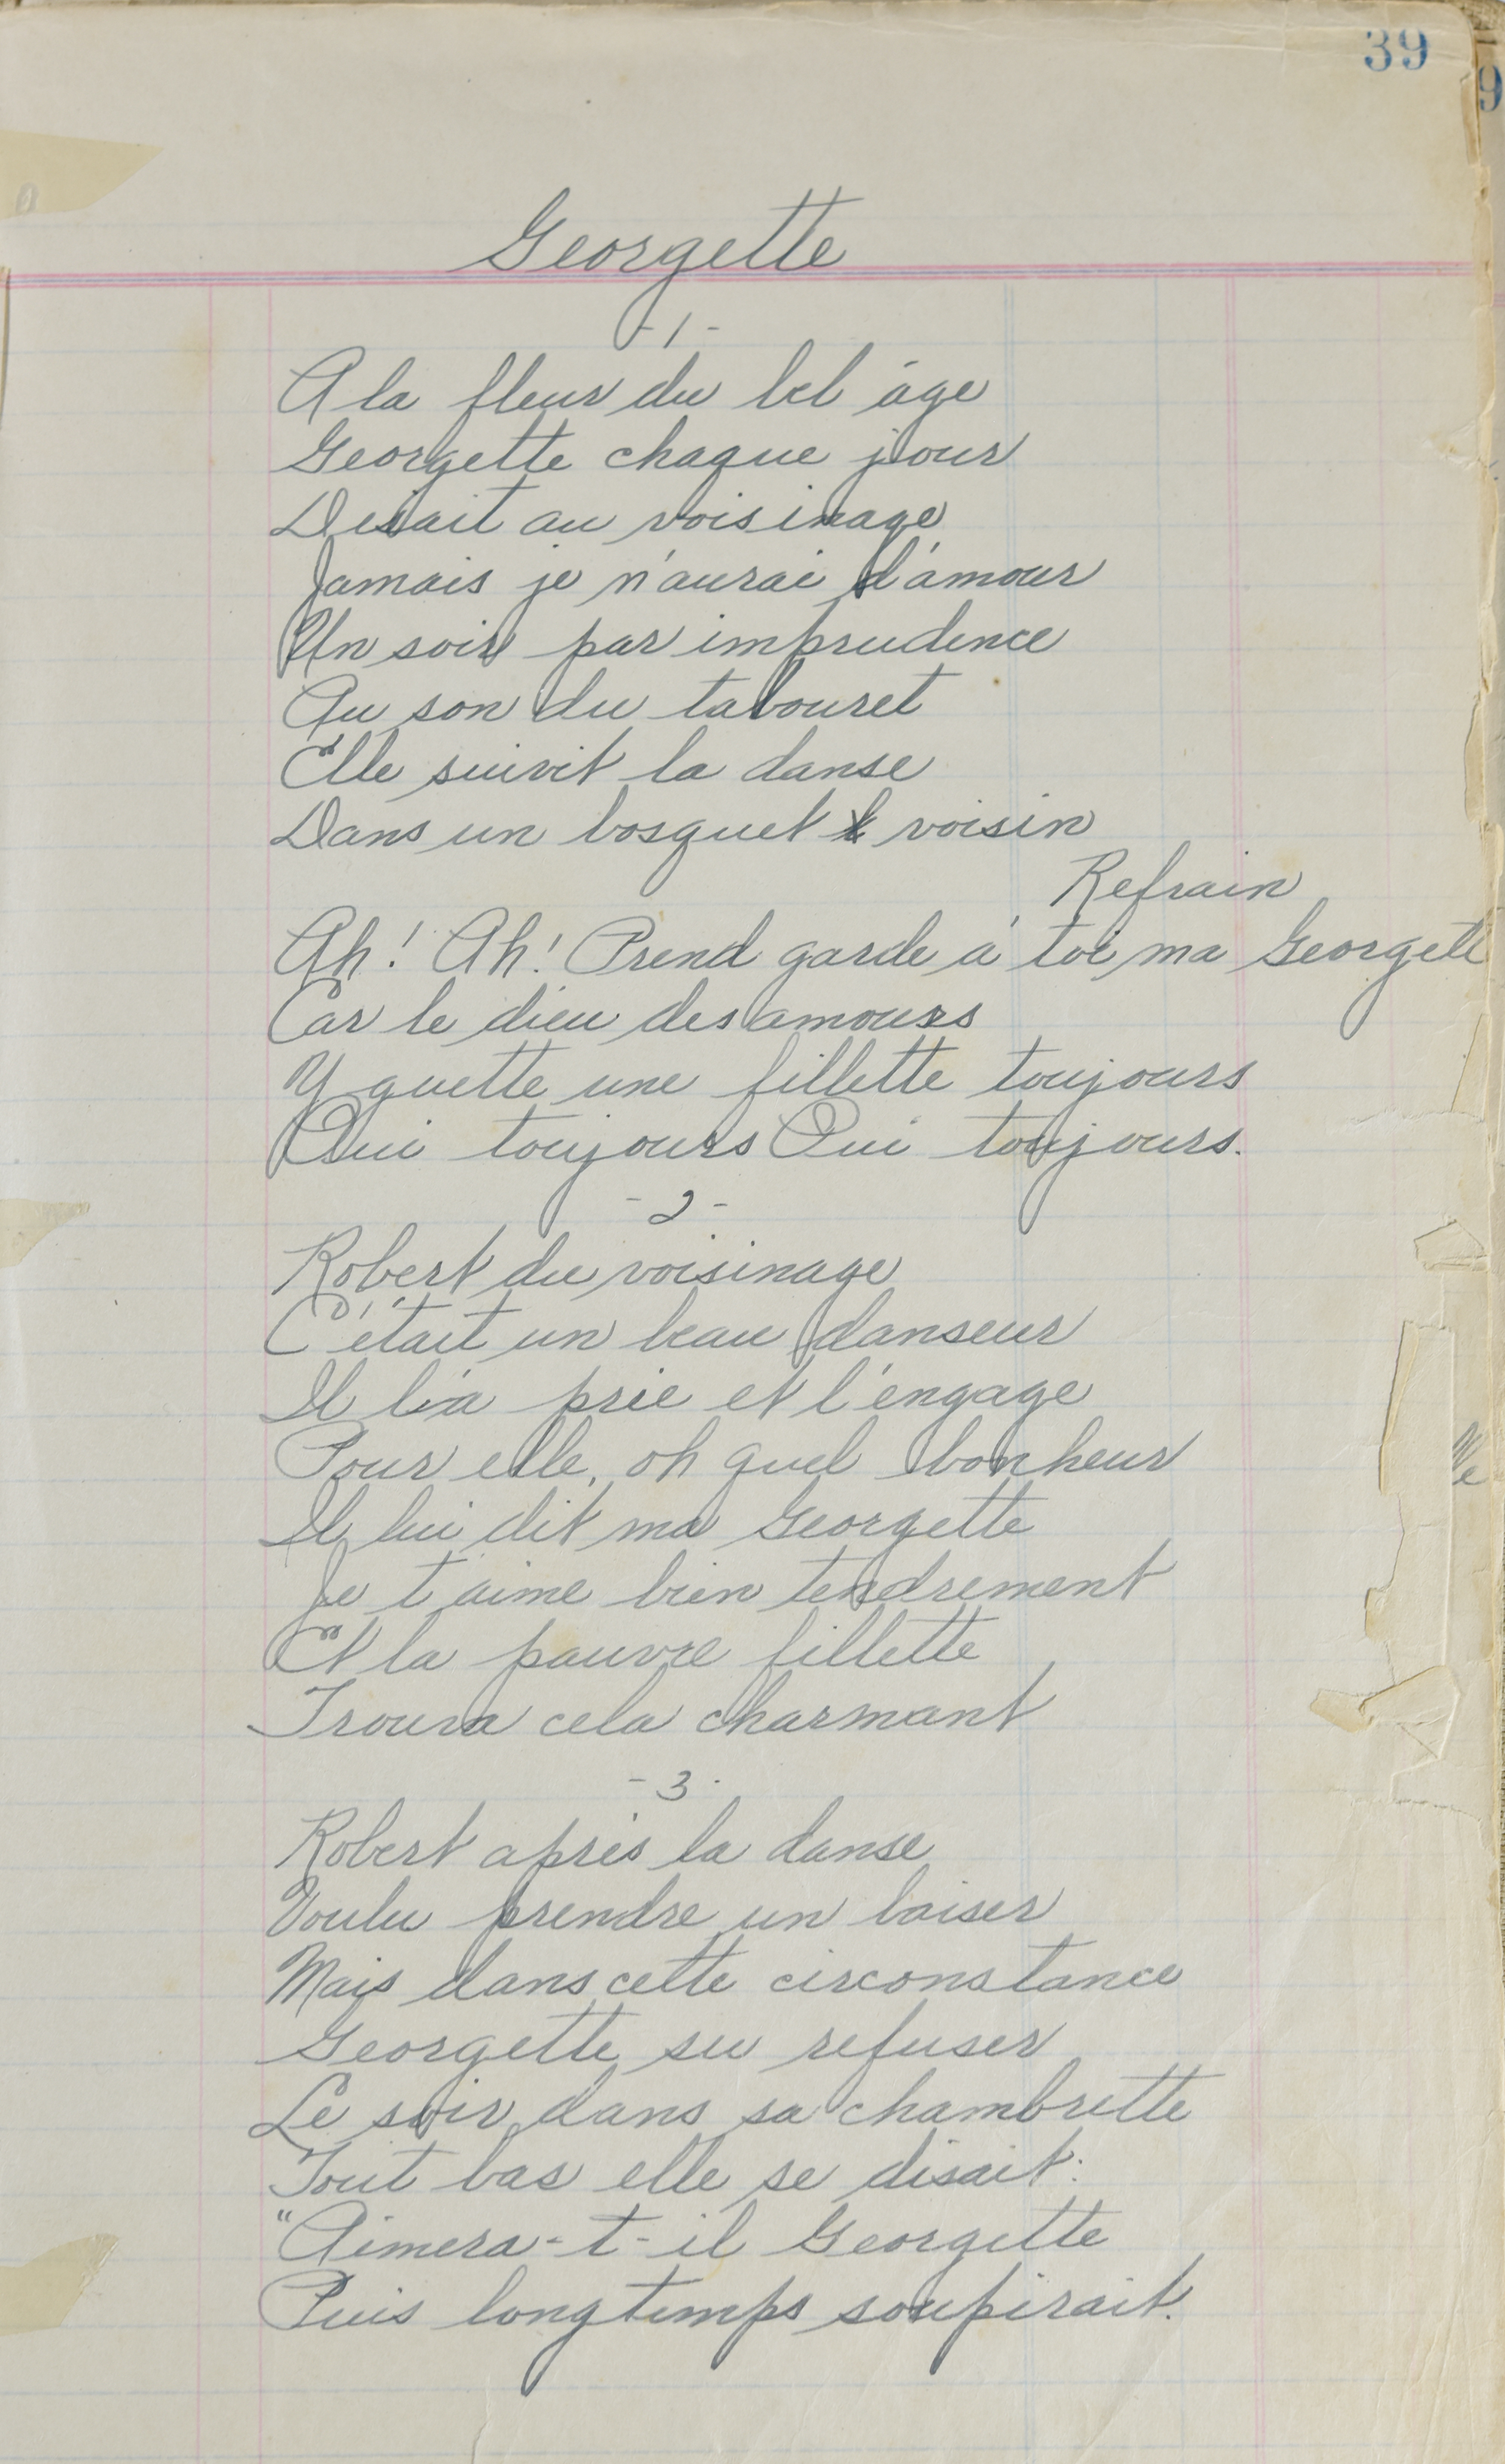 39
Georgette
- 1 -
A la fleur du bel âge
Georgette chaque jour
Disait au voisinage
Jamais je n'aurai d'amour
Un soir par imprudence
Au son du tabouret
Elle suivit la danse
Dans un bosquet voisin
Refrain
Ah! Ah! Prend garde à toi ma Georgett
Car le dieu des amours
Y guette une fillette toujours
Oui toujours Oui toujours.
- 2 -
Robert du voisinage
C'était un beau danseur
Il l'a prie et l'engage
Pour elle, oh quel bonheur
Il lui dit ma Georgette
Je t'aime bien tendrement
Et la pauvre fillette
Trouva cela charmant
- 3 -
Robert après la danse
Voulu prendre un baiser
Mais dans cette circonstance
Georgette su refuser
Le soir dans sa chambrette
Tout bas elle se disait:
"Aimera-t-il Georgette
Puis longtemps soupirait.